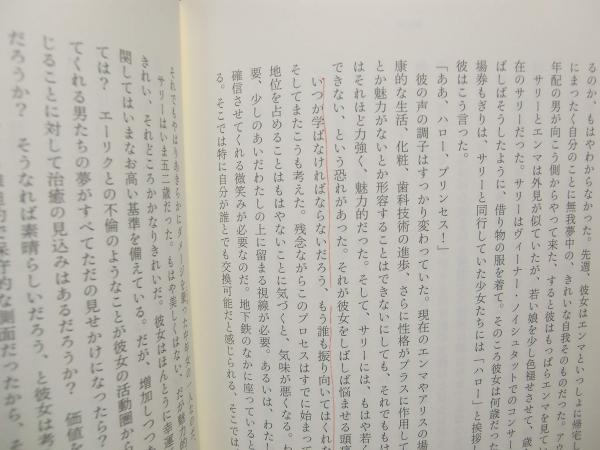 るのか、もはやわからなかった。先週、彼女はエンマといっしょに帰宅し
にまったく自分のことに無我夢中の、きれいな自我そのものだった。アウ
年配の男が向こう側からやって来た、すると彼はもっぱらエンマを見てい
サリーとエンマは外見が似ていたが、若い娘を少し色褪せさせて、歳
在のサリーだった。サリーはヴィーナー・ノイシュタットでのコンサー
ばしばそうしたように、借り物の服を着て。そのころ彼女は何歳だった
場券もぎりは、サリーと同行していた少女たちには「ハロー」と挨拶し
彼はこう言った。
「ああ、ハロー、プリンセス！」
彼の声の調子はすっかり変わっていた。現在のエンマやアリスの場
康的な生活、化粧、歯科技術の進歩、さらに性格がプラスに作用して
とか魅力がないとか形容することはできないにしても、それでももは
はそれほど力強く、魅力的だった。そして、サリーには、もはや若く
できない、という恐れがあった。それが彼女をしばしば悩ませる頭痛
いつか学ばなければならないだろう、もう誰も振り向いてはくれな
そしてまたこうも考えた。残念ながらこのプロセスはすでに始まって
地位を占めることはもはやないことに気づくと、気味が悪くなる。わ
要、少しのあいだわたしの上に留まる視線が必要。あるいは、わたし
確信させてくれる微笑みが必要なのだ。地下鉄のなかに座っていると
る。そこでは特に自分が誰とでも交換可能だと感じられる、そこでは
それでもやはりあきらかにダメージを
サリーはいま五二歳だった。もはや美しくはない、だが魅力的
きれい、それどころかかなりきれいだ。彼女はほんとうに幸運
関してはいまなお高い基準を備えている。だが、増加しつつ
ては？　エーリクとの不倫のようなことが彼女の活動圏から
てくれる男たちの夢がすべてただの見せかけになったら？
じることに対して治癒の見込みはあるだろうか？　価値を
だろうか？　そうなれば素晴らしいだろう、と彼女は考
保守的な側面だったから、そ